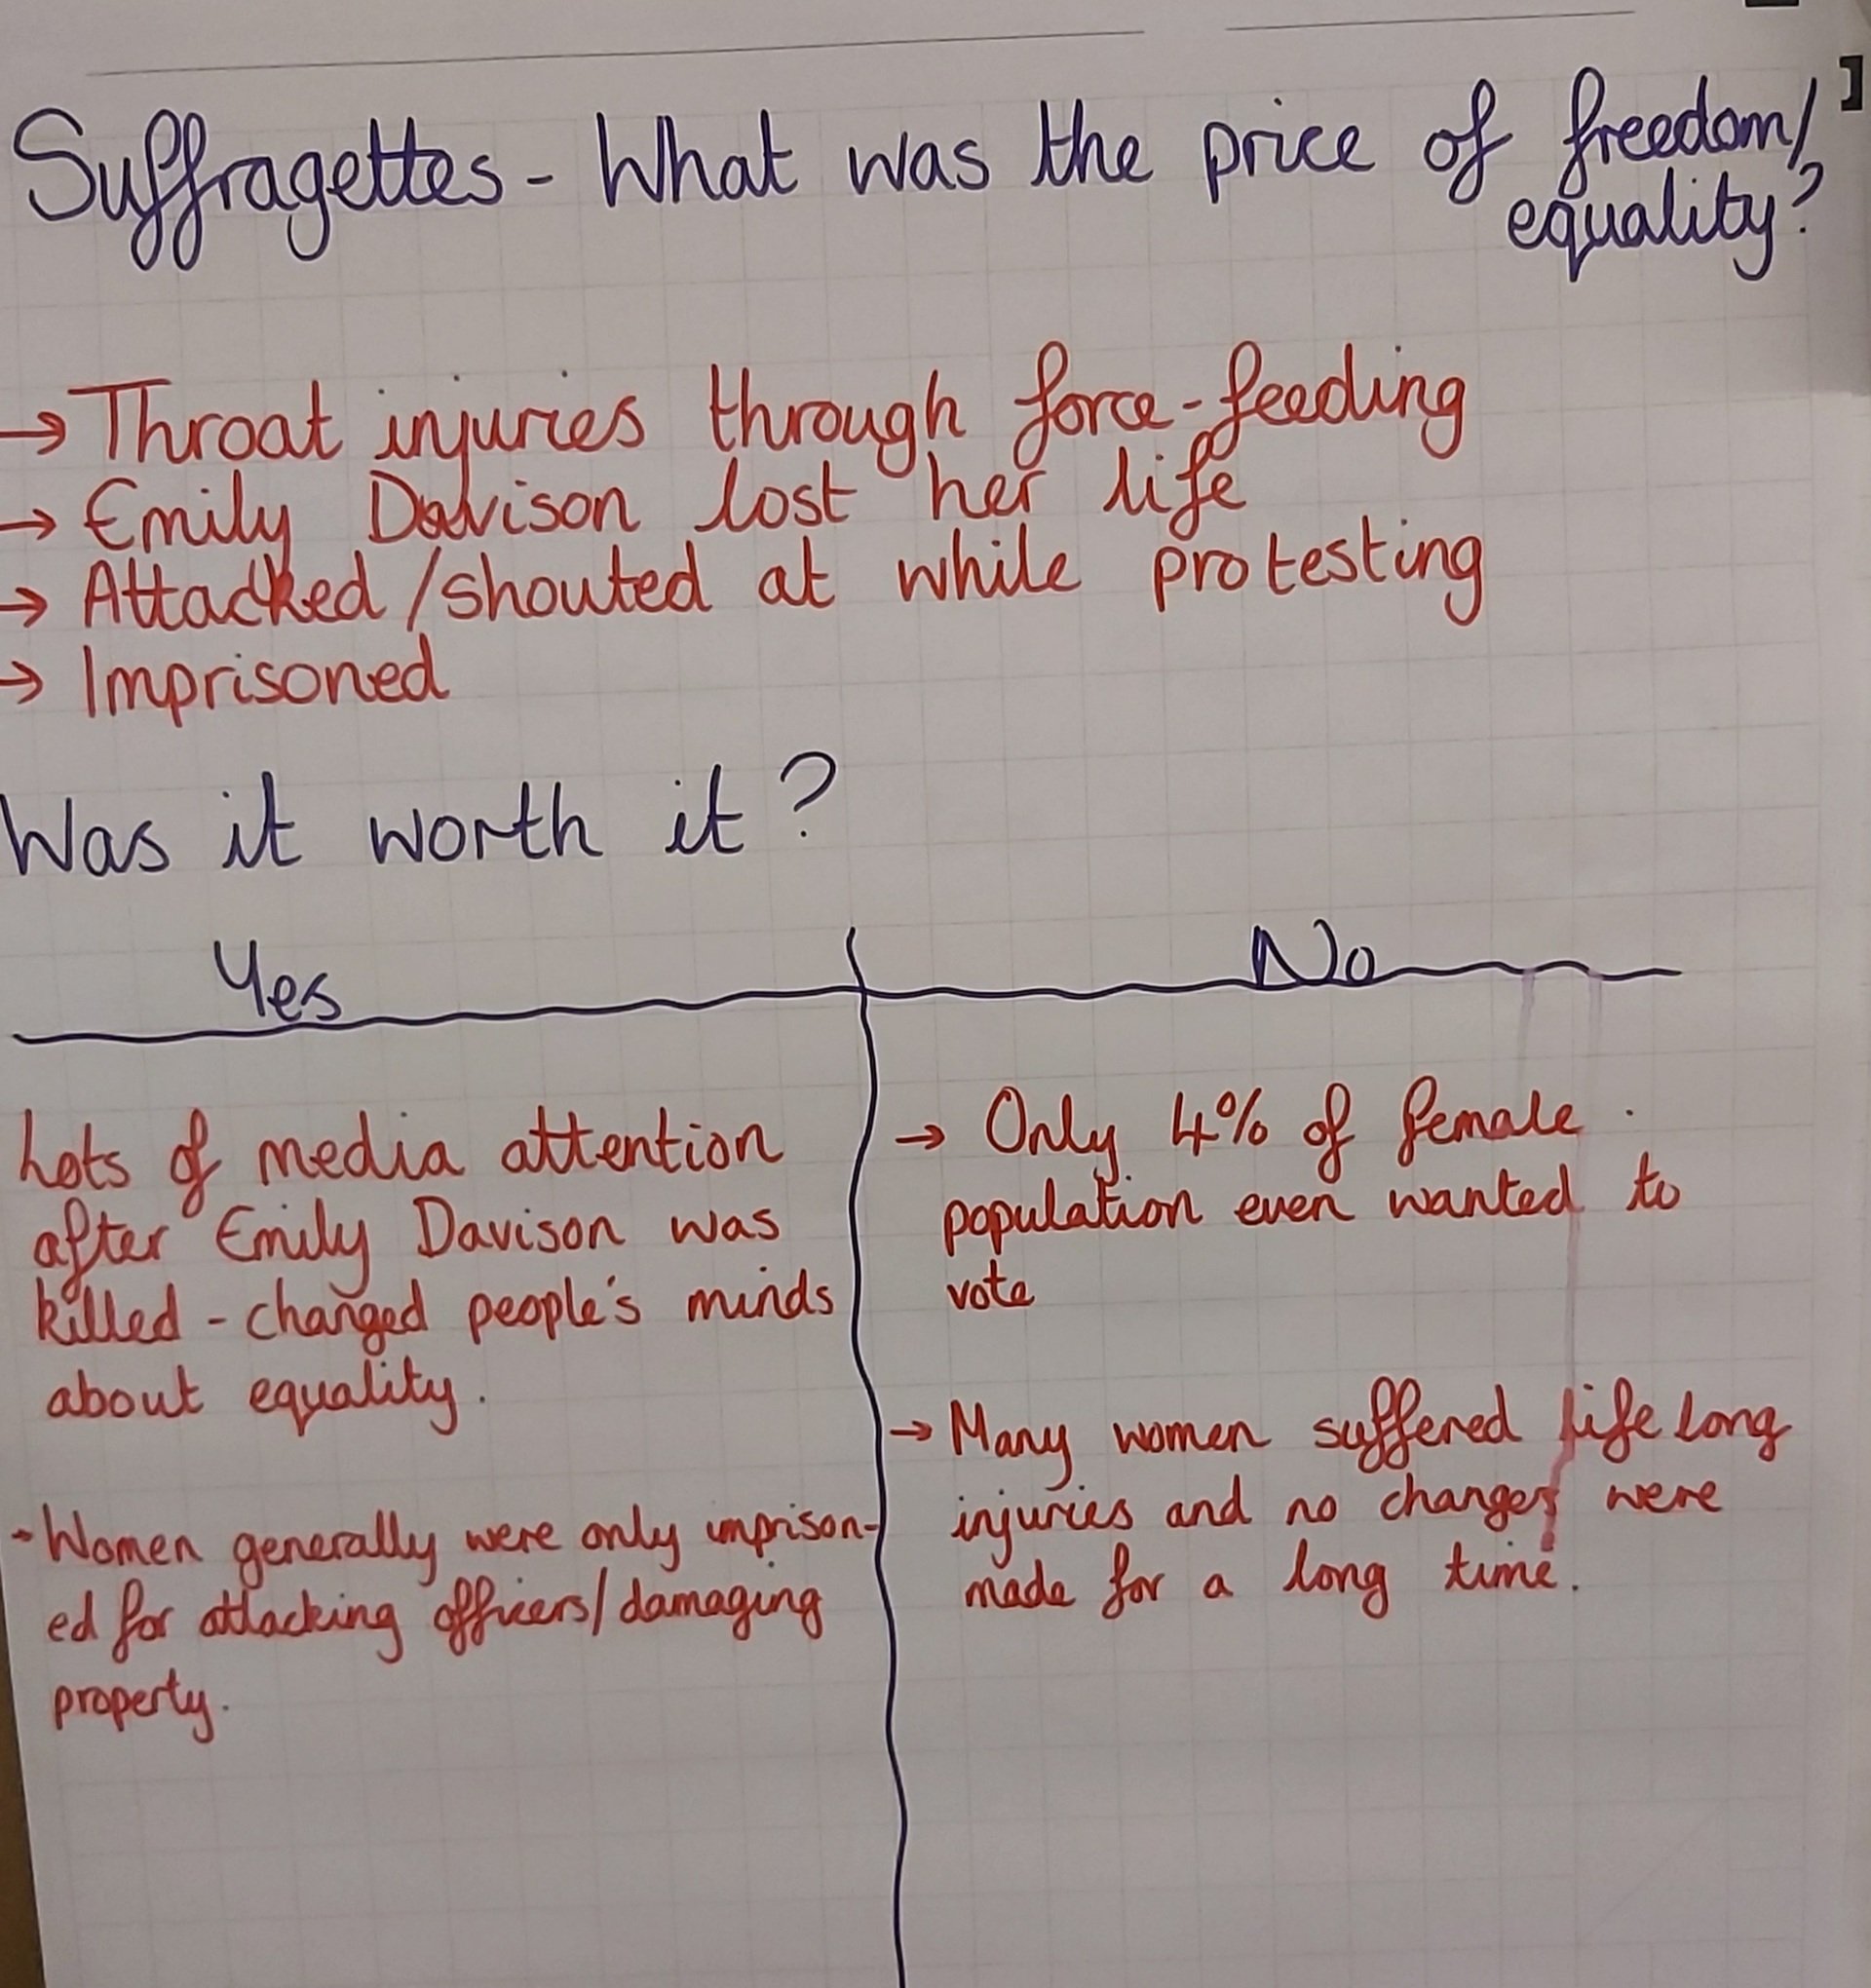 Suffragettes - What was the price of freedom/
equality?
→ Throat injuries through force-feeding
→ Emily Davison lost her life
→ Attacked/shouted at while protesting
→ Imprisoned
Was it worth it?
Yes
Lots of media attention
after Emily Davison was
killed - changed people's minds
about equality.
- Women generally were only imprison-
ed for attacking officers/damaging
property.
No
→ Only 4% of female
population even wanted to
vote
→ Many women suffered life long
injuries and no changes were
made for a long time.